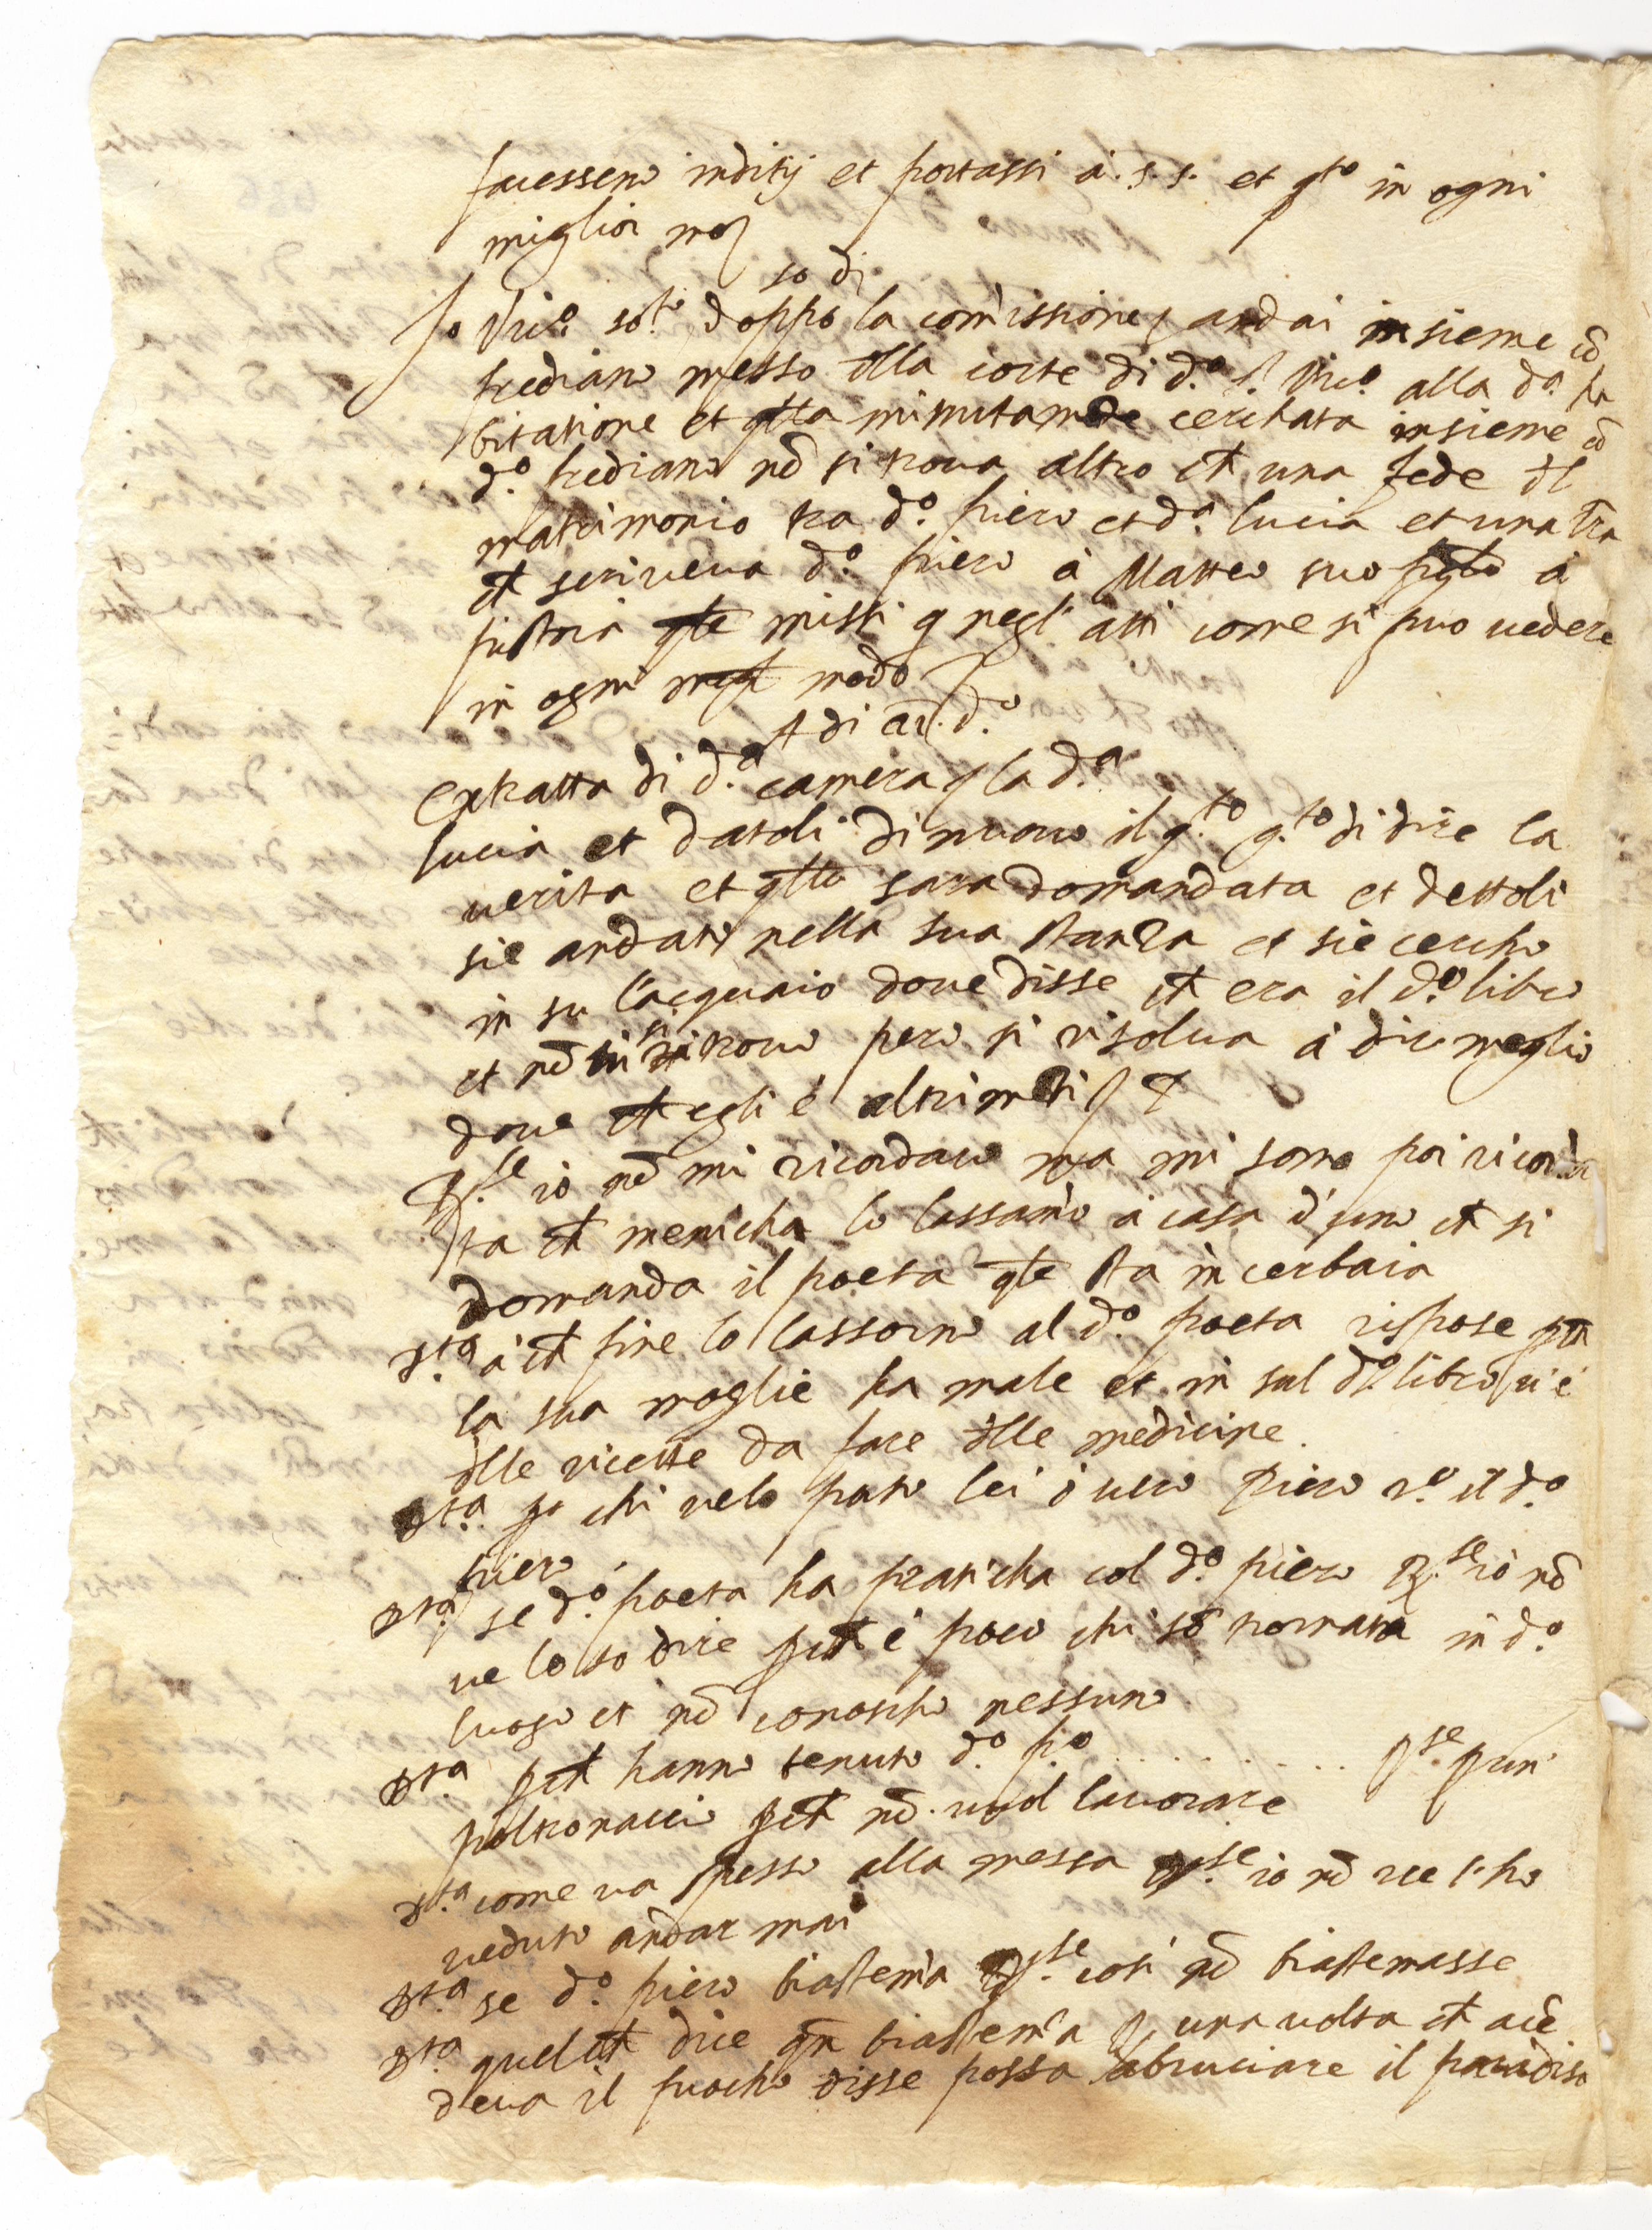 facessero inditij et portassi à .s.s. et q.to in ogni
miglior mo
so di
Io Vic.o sot.o doppo la com'issione andai insieme cõ
frediano messo dlla corte di d.o S. Vic.o alla d.a ha
bitatione et qlla minutam.te cerchata insieme cõ
d.o frediano nõ si trova altro ch una fede dl
matrimonio tra d.o piero et d.a lucia et una lra
ch scriveva d.o piero à Matteo suo à
pistoia qle missi q negl'atti come si puo vedere
in ogni modo
A di d.o
Extratta di d.a camera la d.a
lucia et datoli di nuovo il g.to g.to di dire la
verita et qllo sara domandata et dettoli
sie andati nella sua stanza et sie cercho
in su l'acquaio dove disse ch era il d.o libro
et nõ si trovo pero si risolva à dir meglio
dove ch egli è altrimẽti
R.se io nõ mi ricordavo ma mi sono poi ricorda
ta ch menicha lo lassamo à casa d'uno ch si
domanda il poeta qle sta in cerbaia
D.ta à ch fine lo lassorno al d.o poeta rispose pch
la sua moglie ha male et in sul d.o libro vi è
dlle ricette da fare dlle medicine.
D.ta chi velo porto lei ò vero piero r.o il d.o
piero
D.ta se d.o poeta ha praticha col d.o piero R.se io nõ
ve lo so dire pch è poco chi sõ tornata in d.o
luogo et nõ conoscho nessuno
D.ta pch hanno tenuto d.o p.o . . . . . . . R.se p un
poltronaccio pch nõ vuol lavorare
D.ta come va spesso alla messa R.se io nõ ve l'ho
veduto andar mai
D.ta se d.o piero biastem'a R.se cosi nõ biastemasse
D.ta quel ch dice qn biastem'a R. una volta ch acẽ
deva il fuocho disse possa abruciare il paradiso